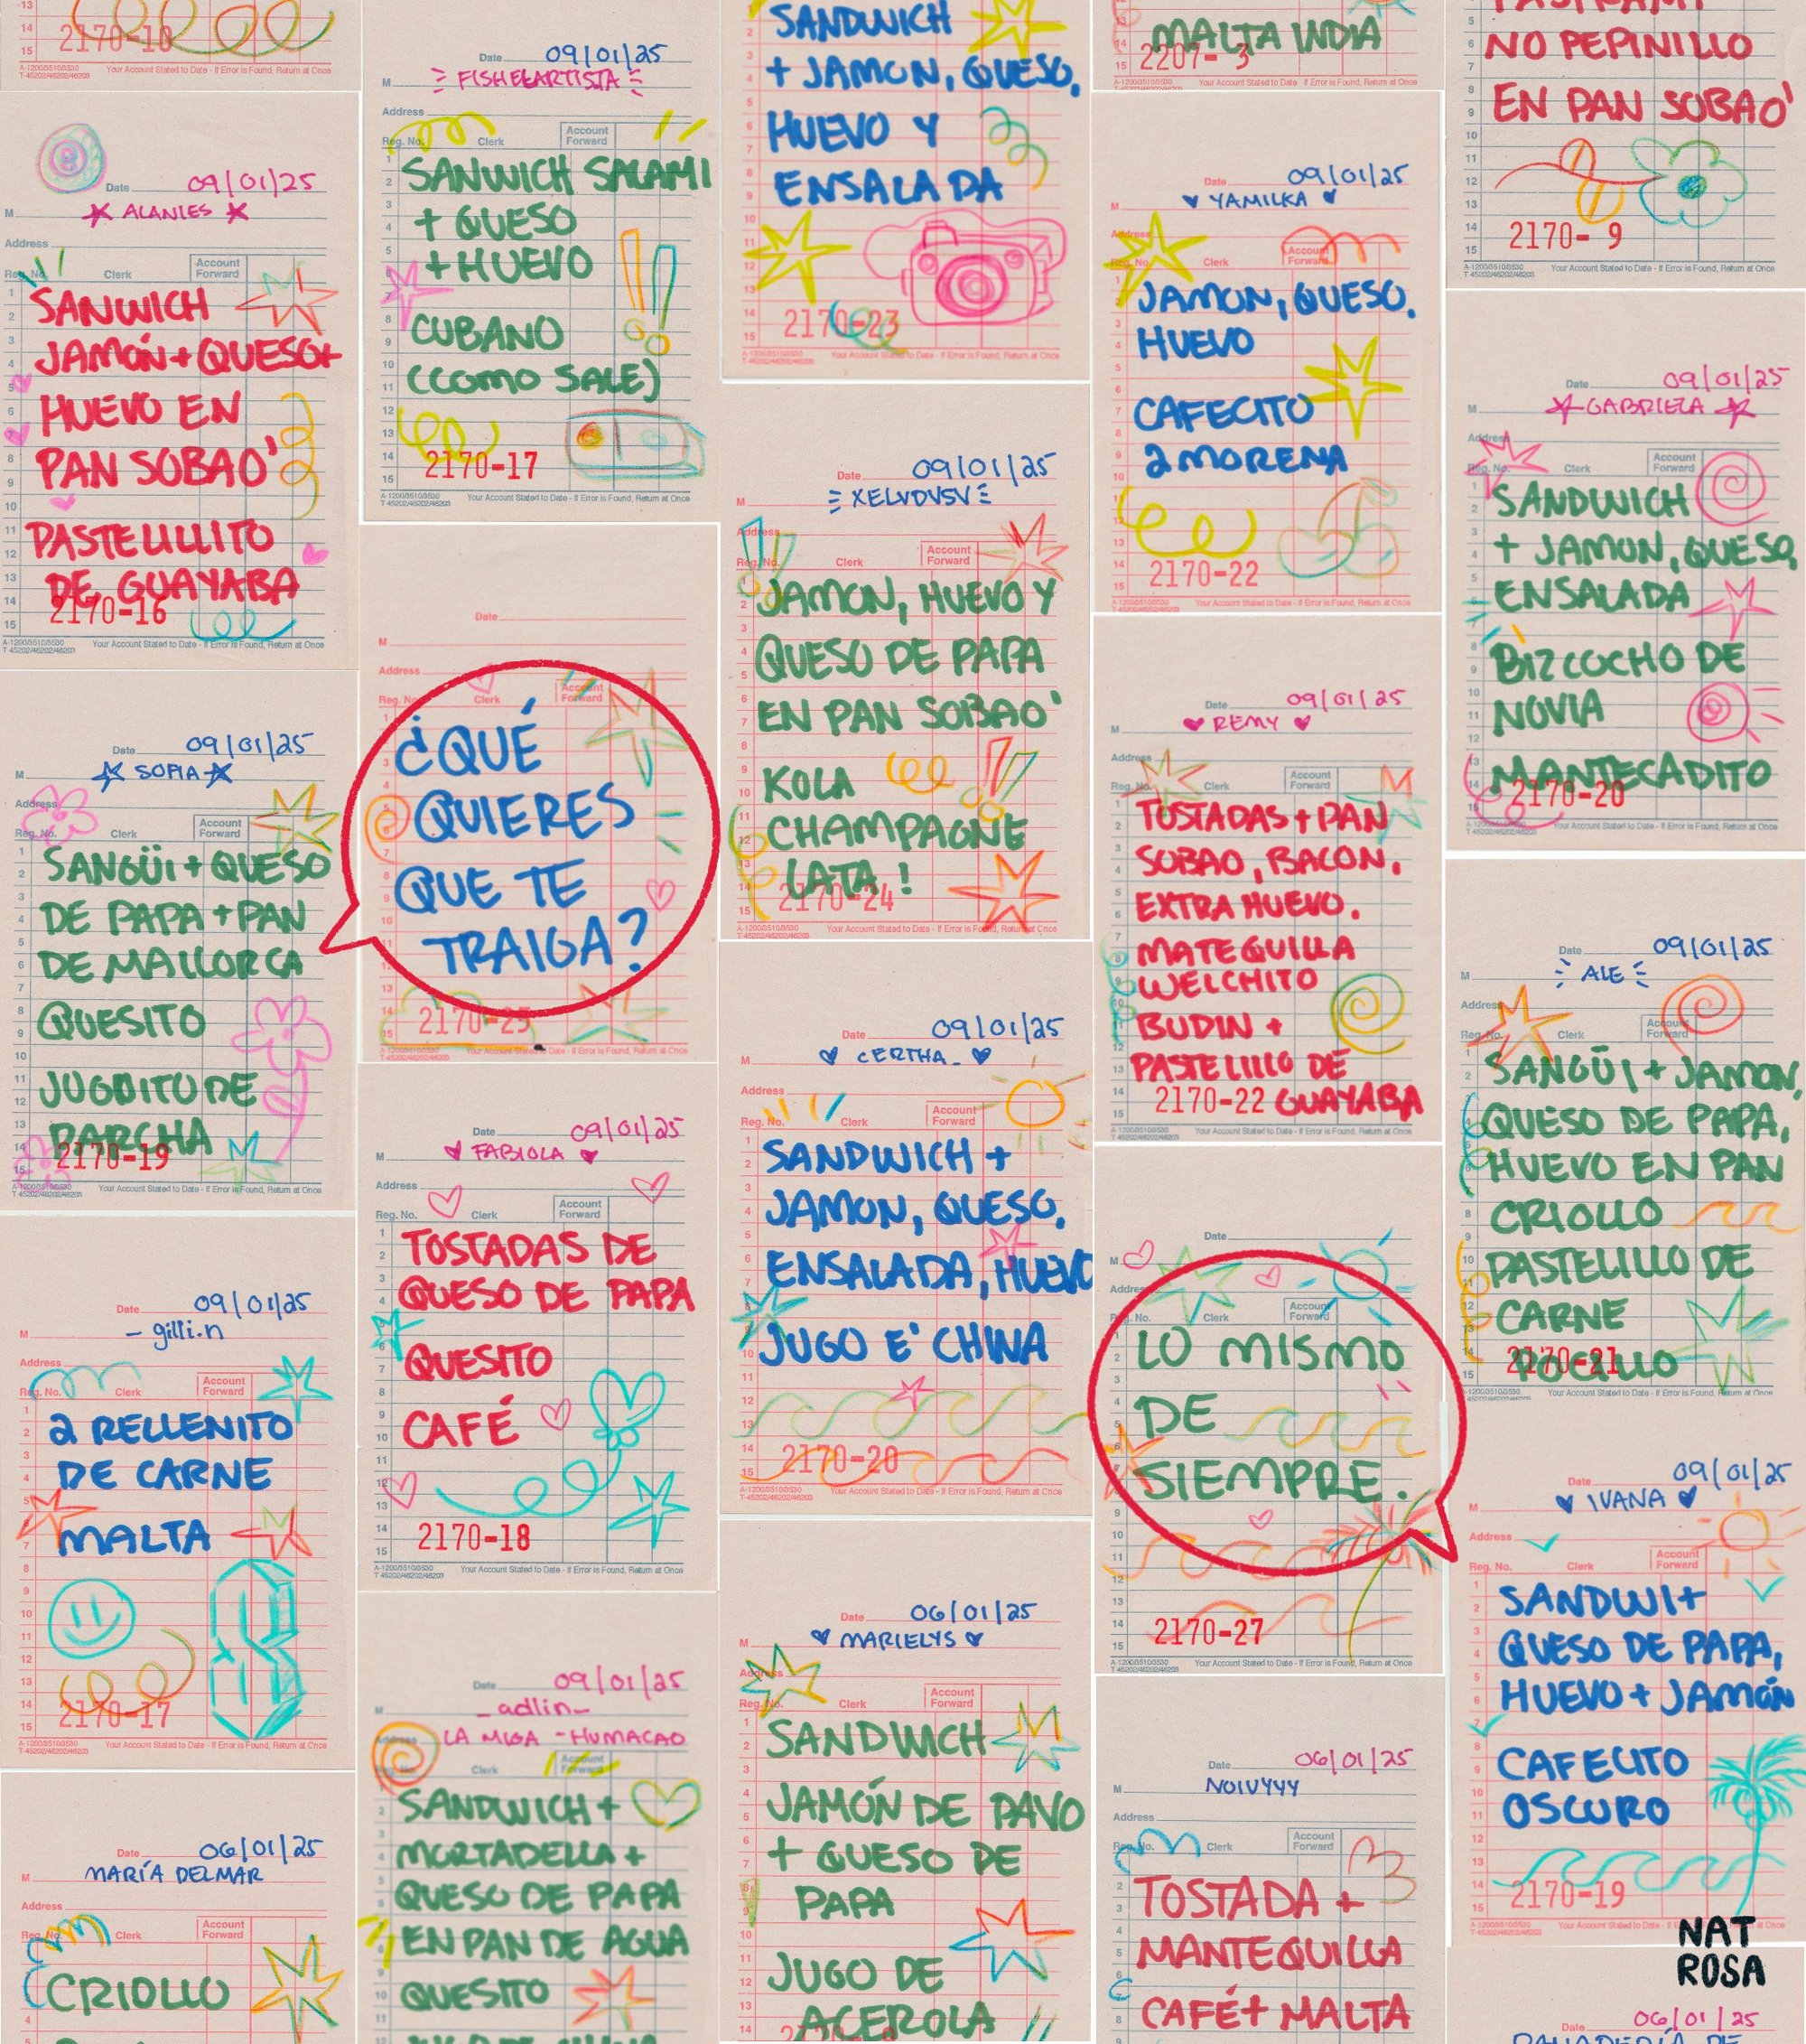 13
14
15
2170-10
A-1200/3510/3530
T-45202/46202/46203
Your Account Stated to Date - If Error is Found, Return at Once
Date 09/01/25
M ALANIES
Address
Reg. No. Clerk Account Forward
SANWICH
JAMÓN + QUESO +
HUEVO EN
PAN SOBAO'
PASTELILLITO
DE GUAYABA
2170-16
A-1200/3510/3530
T 45202/46202/46203
Your Account Stated to Date - If Error is Found, Return at Once
Date 09/01/25
M SOFIA
Address
Reg. No. Clerk Account Forward
SANGÜI + QUESO
DE PAPA + PAN
DE MALLORCA
QUESITO
JUGUITO DE
PARCHA
2170-19
Your Account Stated to Date - If Error is Found, Return at Once
Date 09/01/25
M - gilli.n
Address
Reg. No. Clerk Account Forward
2 RELLENITO
DE CARNE
MALTA
2170-17
Your Account Stated to Date - If Error is Found, Return at Once
Date 06/01/25
M MARÍA DELMAR
Address
Reg. No. Clerk Account Forward
CRIOLLO
Date 09/01/25
M FISHELARTISTA
Address
Reg. No. Clerk Account Forward
SANWICH SALAMI
+ QUESO
+ HUEVO
CUBANO
(COMO SALE)
2170-17
Your Account Stated to Date - If Error is Found, Return at Once
Date
M
Address
Reg. No. Clerk Account Forward
¿QUÉ
QUIERES
QUE TE
TRAIGA?
2170-25
Date 09/01/25
M FABIOLA
Address
Reg. No. Clerk Account Forward
TOSTADAS DE
QUESO DE PAPA
QUESITO
CAFÉ
2170-18
Your Account Stated to Date - If Error is Found, Return at Once
Date 09/01/25
_adlin_
Address LA MIGA - HUMACAO
Clerk Account Forward
SANDWICH +
MORTADELLA +
QUESO DE PAPA
EN PAN DE AGUA
QUESITO
SANDWICH
+ JAMON, QUESO,
HUEVO Y
ENSALADA
2170-23
Your Account Stated to Date - If Error is Found, Return at Once
Date 09/01/25
M XELVDVSV
Address
Reg. No. Clerk Account Forward
JAMON, HUEVO Y
QUESO DE PAPA
EN PAN SOBAO'
KOLA
CHAMPAGNE
LATA!
2170-24
Your Account Stated to Date - If Error is Found, Return at Once
Date 09/01/25
M CERTHA_
Address
Reg. No. Clerk Account Forward
SANDWICH +
JAMON, QUESO,
ENSALADA, HUEVO
JUGO E' CHINA
2170-20
Your Account Stated to Date - If Error is Found, Return at Once
Date 06/01/25
M MARIELYS
Address
Reg. No. Clerk Account Forward
SANDWICH
JAMÓN DE PAVO
+ QUESO DE
PAPA
JUGO DE
ACEROLA
MALTA INDIA
2207-3
Your Account Stated to Date - If Error is Found, Return at Once
Date 09/01/25
M YAMILKA
Address
Reg. No. Clerk Account Forward
JAMON, QUESO,
HUEVO
CAFECITO
2 MORENA
2170-22
Your Account Stated to Date - If Error is Found, Return at Once
Date 09/01/25
M REMY
Address
Reg. No. Clerk Account Forward
TOSTADAS + PAN
SOBAO, BACON,
EXTRA HUEVO.
MATEQUILLA
WELCHITO
BUDIN +
PASTELILLO DE
GUAYABA
2170-22
Your Account Stated to Date - If Error is Found, Return at Once
Date
M
Address
Reg. No. Clerk Account Forward
LO MISMO
DE
SIEMPRE.
2170-27
Your Account Stated to Date - If Error is Found, Return at Once
Date 06/01/25
M NOIVYYY
Address
Reg. No. Clerk Account Forward
TOSTADA +
MANTEQUILLA
CAFÉ + MALTA
PASTRAMI
NO PEPINILLO
EN PAN SOBAO'
2170-9
Your Account Stated to Date - If Error is Found, Return at Once
Date 09/01/25
M GABRIELA
Address
Reg. No. Clerk Account Forward
SANDWICH
+ JAMON, QUESO,
ENSALADA
BIZCOCHO DE
NOVIA
MANTECADITO
2170-20
Your Account Stated to Date - If Error is Found, Return at Once
Date 09/01/25
M ALE
Address
Reg. No. Clerk Account Forward
SANGÜI + JAMON,
QUESO DE PAPA,
HUEVO EN PAN
CRIOLLO
PASTELILLO DE
CARNE
POCILLO
2170-21
Your Account Stated to Date - If Error is Found, Return at Once
Date 09/01/25
M IVANA
Address
Reg. No. Clerk Account Forward
SANDWI +
QUESO DE PAPA,
HUEVO + JAMÓN
CAFECITO
OSCURO
2170-19
NAT
ROSA
Date 06/01/25